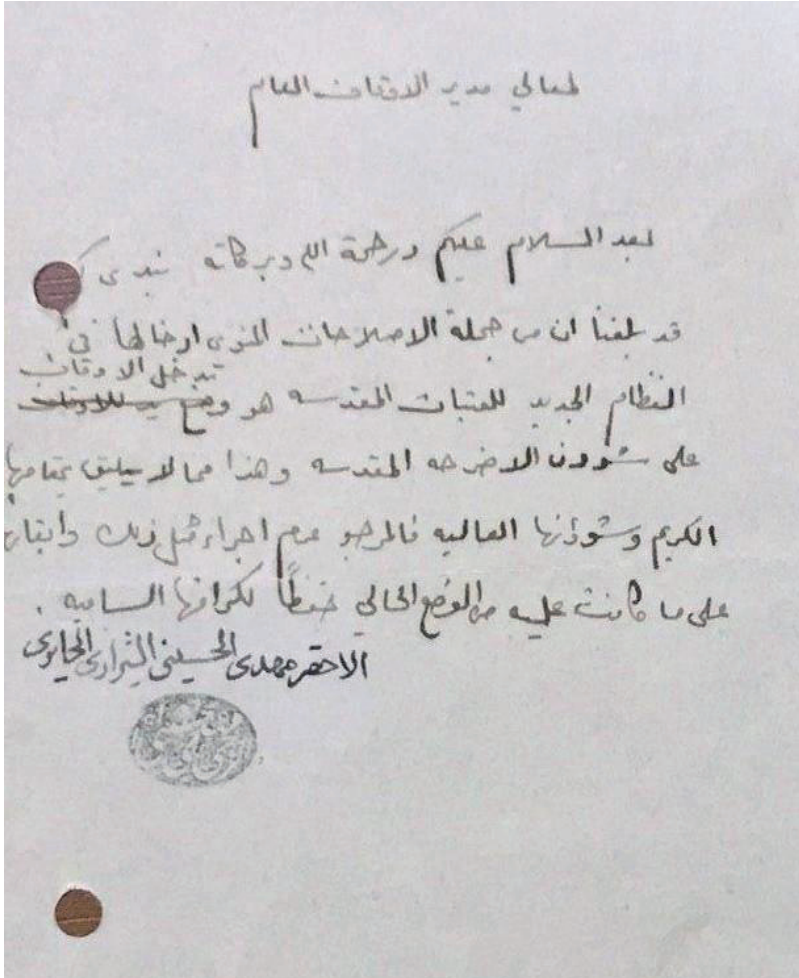 لمعالي مدير الاوقاف العام
بعد السلام عليكم ورحمة الله وبركاته نبدى
قد بلغنا ان من جملة الاصلاحات المنوى ادخالها في
تدخل الاوقاف
النظام الجديد للعتبات المقدسه هو
على شؤون الاضرحه المقدسه وهذا مما لا يليق بمقامها
الكريم وشؤنها العاليه فالمرجو عدم اجراء مثل ذلك وابقاؤها
على ما كانت عليه من الوضع الحالي حفظاً لكرامتها الساميه .
الاحقر مهدى الحسيني الشيرازى الحايرى